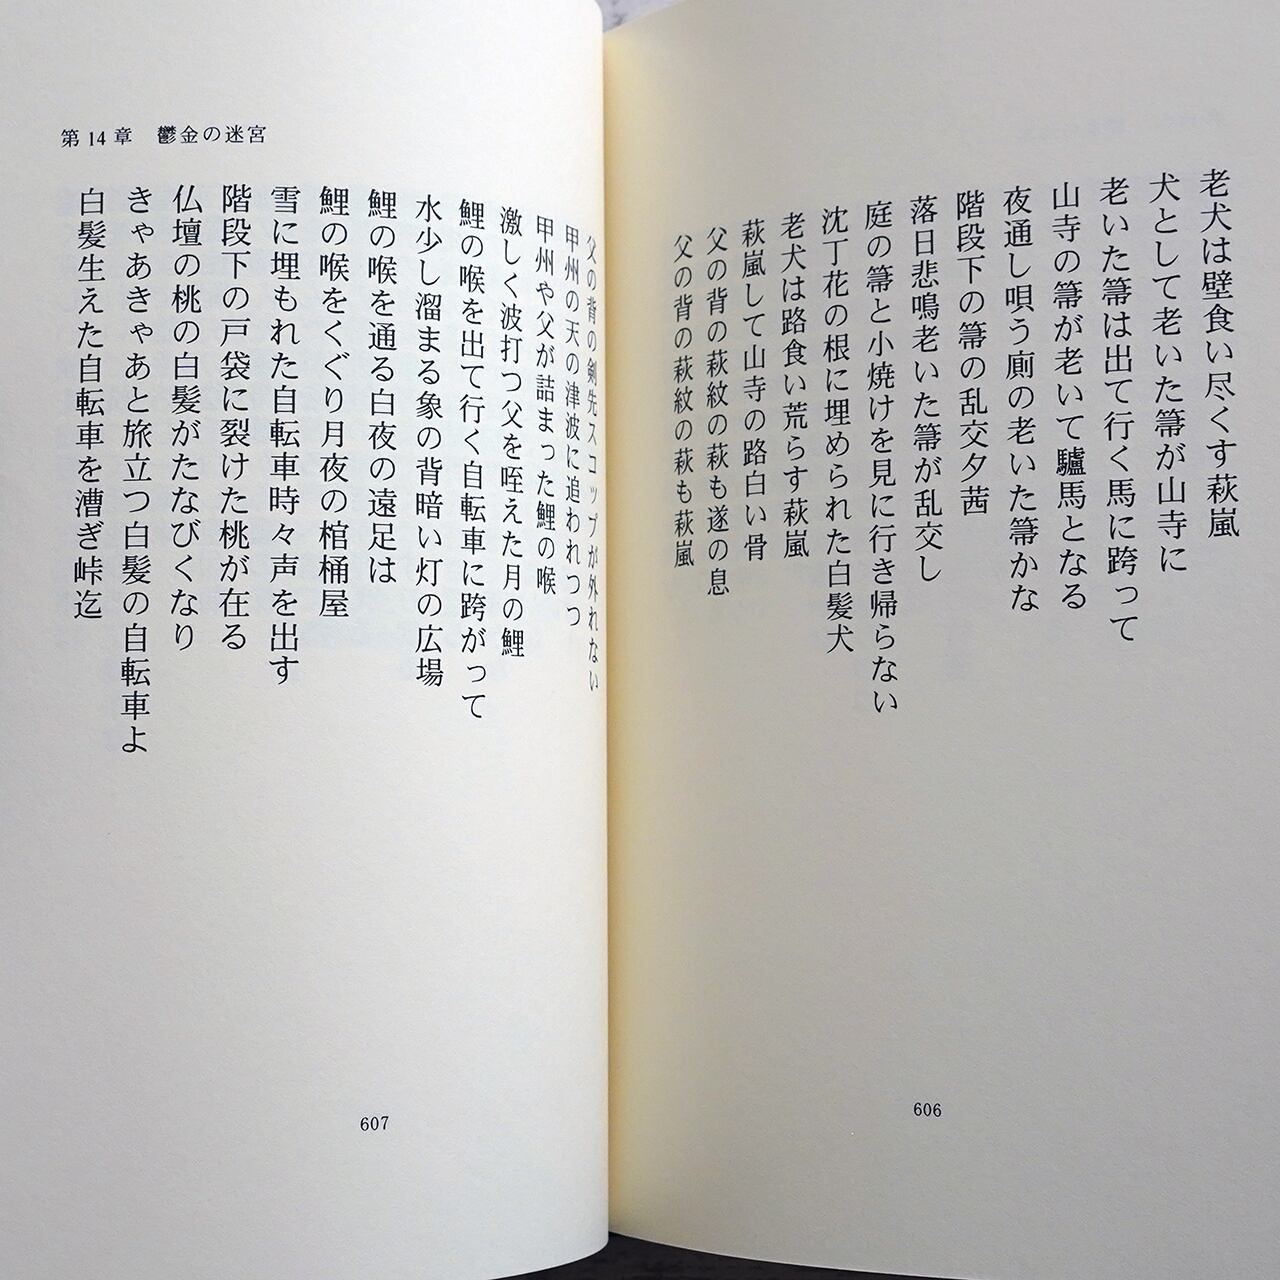 老犬は壁食い尽くす萩嵐
犬として老いた箒が山寺に
老いた箒は出て行く馬に跨って
山寺の箒が老いて驢馬となる
夜通し唄う廁の老いた箒かな
階段下の箒の乱交夕茜
落日悲鳴老いた箒が乱交し
庭の箒と小焼けを見に行き帰らない
沈丁花の根に埋められた白髪犬
老犬は路食い荒らす萩嵐
萩嵐して山寺の路白い骨
父の背の萩紋の萩も遂の息
父の背の萩紋の萩も萩嵐
606
第14章 鬱金の迷宮
父の背の剣先スコップが外れない
甲州の天の津波に追われつつ
甲州や父が詰まった鯉の喉
激しく波打つ父を咥えた月の鯉
鯉の喉を出て行く自転車に跨がって
水少し溜まる象の背暗い灯の広場
鯉の喉を通る白夜の遠足は
鯉の喉をくぐり月夜の棺桶屋
雪に埋もれた自転車時々声を出す
階段下の戸袋に裂けた桃が在る
仏壇の桃の白髪がたなびくなり
きゃあきゃあと旅立つ白髪の自転車よ
白髪生えた自転車を漕ぎ峠迄
607